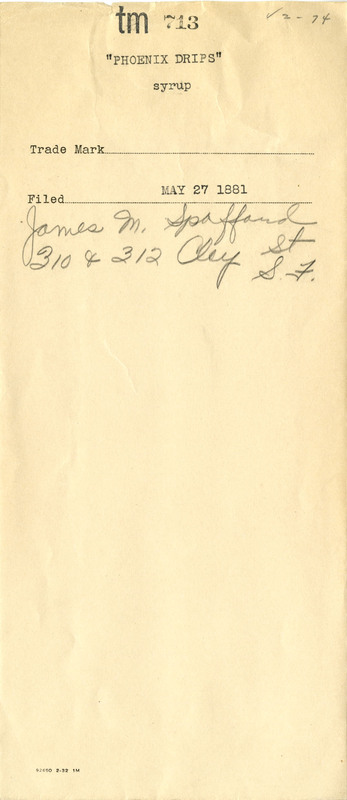 tm 713
v 2-74
"PHOENIX DRIPS"
syrup
Trade Mark
Filed MAY 27 1881
James M. Spafford
310 & 312 Clay St
S.F.
82950 2-32 1M